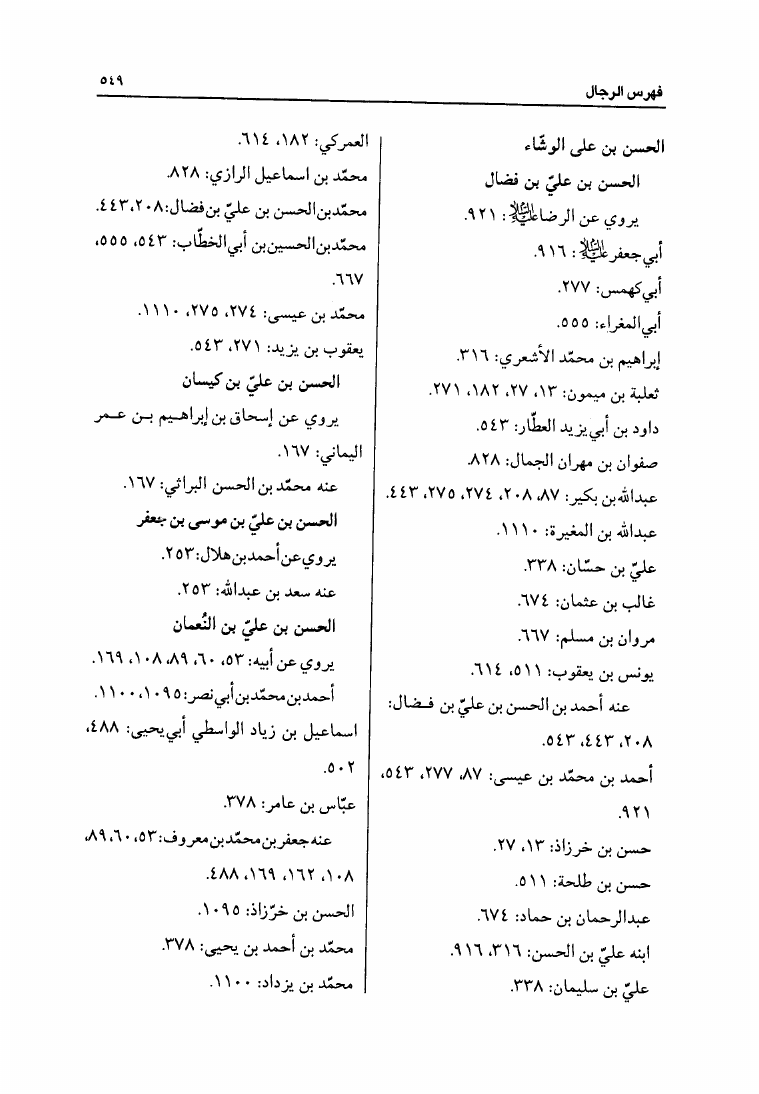 فهرس الرجال
٥٤٩
الحسن بن على الوشّاء
الحسن بن عليّ بن فضال
يروي عن الرضا عليه السلام: ٩٢١.
أبي جعفر عليه السلام: ٩١٦.
أبي كهمس: ٢٧٧.
أبي المغراء: ٥٥٥.
إبراهيم بن محمّد الأشعري: ٣١٦.
ثعلبة بن ميمون: ١٣، ٢٧، ١٨٢، ٢٧١.
داود بن أبي يزيد العطّار: ٥٤٣.
صفوان بن مهران الجمال: ٨٢٨.
عبدالله بن بكير: ٨٧، ٢٠٨، ٢٧٤، ٢٧٥، ٤٤٣.
عبدالله بن المغيرة: ١١١٠.
عليّ بن حسّان: ٣٣٨.
غالب بن عثمان: ٦٧٤.
مروان بن مسلم: ٦٦٧.
يونس بن يعقوب: ٥١١، ٦١٤.
عنه أحمد بن الحسن بن عليّ بن فـضال:
٢٠٨، ٤٤٣، ٥٤٣.
أحمد بن محمّد بن عيسى: ٨٧، ٢٧٧، ٥٤٣،
٩٢١.
حسن بن خرزاذ: ١٣، ٢٧.
حسن بن طلحة: ٥١١.
عبدالرحمان بن حماد: ٦٧٤.
ابنه عليّ بن الحسن: ٣١٦، ٩١٦.
عليّ بن سليمان: ٣٣٨.
العمركي: ١٨٢، ٦١٤.
محمّد بن اسماعيل الرازي: ٨٢٨.
محمّد بن الحسن بن عليّ بن فضال: ٢٠٨، ٤٤٣.
محمّد بن الحسين بن أبي الخطّاب: ٥٤٣، ٥٥٥،
٦٦٧.
محمّد بن عيسى: ٢٧٤، ٢٧٥، ١١١٠.
يعقوب بن يزيد: ٢٧١، ٥٤٣.
الحسن بن عليّ بن كيسان
يروي عن إسحاق بن إبراهـيم بـن عـمر
اليماني: ١٦٧.
عنه محمّد بن الحسن البراثي: ١٦٧.
الحسن بن عليّ بن موسى بن جعفر
يروي عن أحمد بن هلال: ٢٥٣.
عنه سعد بن عبدالله: ٢٥٣.
الحسن بن عليّ بن النُعمان
يروي عن أبيه: ٥٣، ٦٠، ٨٩، ١٠٨، ١٦٩.
أحمد بن محمّد بن أبي نصر: ١٠٩٥، ١١٠٠.
اسماعيل بن زياد الواسطي أبي يحيى: ٤٨٨،
٥٠٢.
عبّاس بن عامر: ٣٧٨.
عنه جعفر بن محمّد بن معروف: ٥٣، ٦٠، ٨٩،
١٠٨، ١٦٢، ١٦٩، ٤٨٨.
الحسن بن خرّزاذ: ١٠٩٥.
محمّد بن أحمد بن يحيى: ٣٧٨.
محمّد بن يزداد: ١١٠٠.